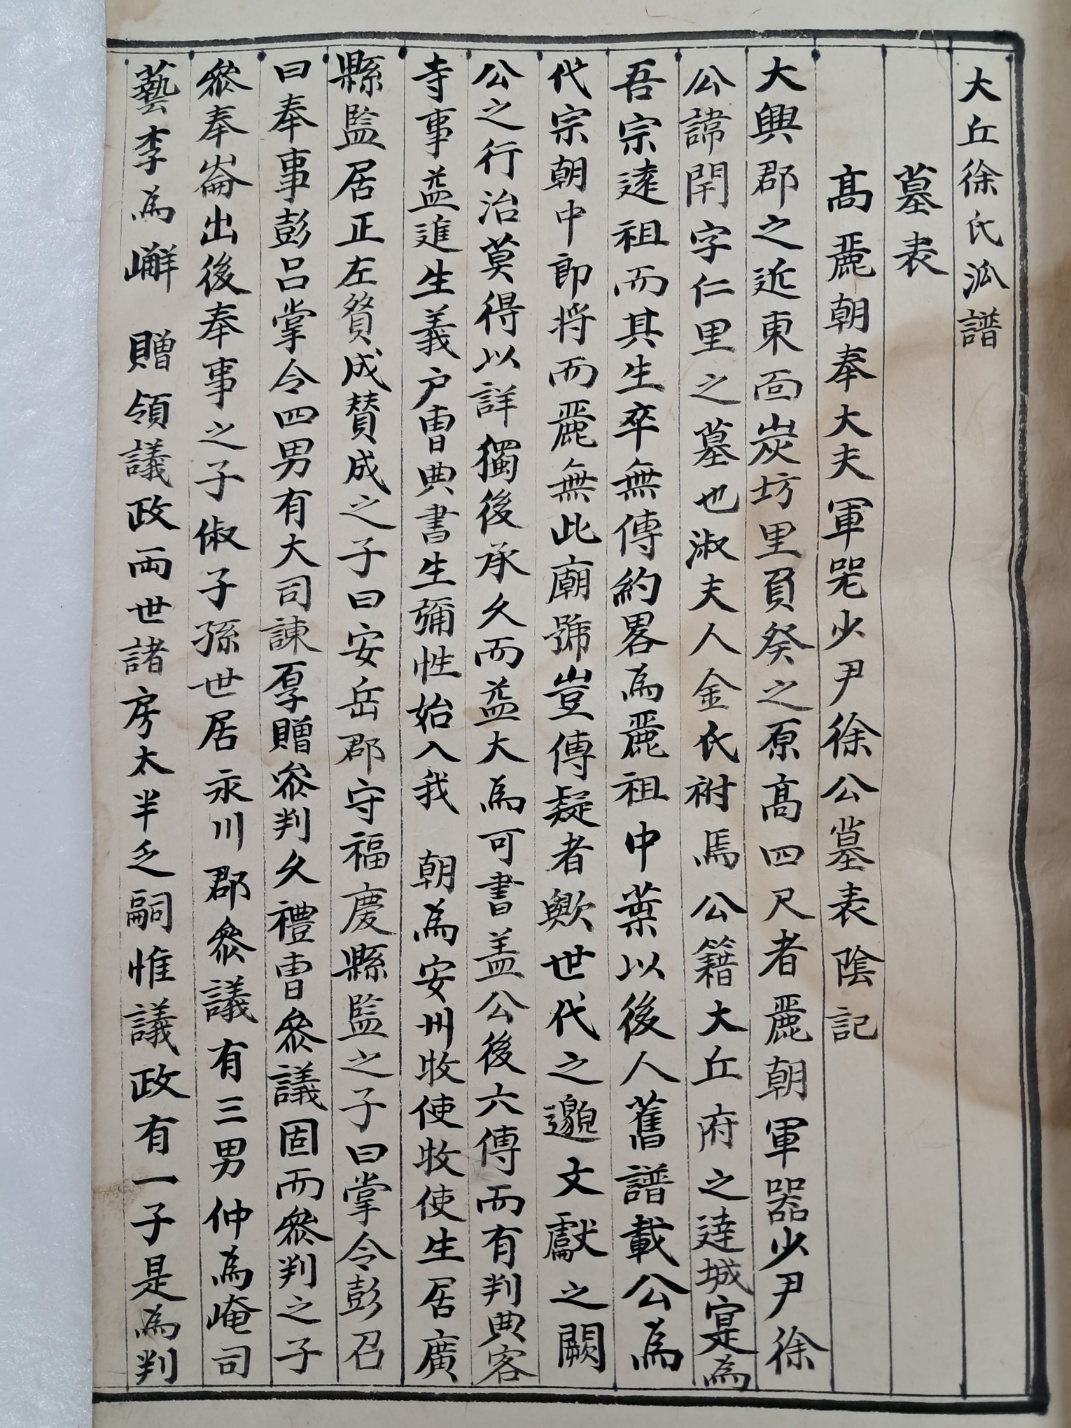 大丘徐氏派譜
墓表
髙麗朝奉大夫軍噐少尹徐公墓表陰記
大興郡之近東面炭坊里負癸之原髙四尺者麗朝軍器少尹徐
公諱閈字仁里之墓也淑夫人金氏祔焉公籍大丘府之達城寔為
吾宗逺祖而其生卒無傳約畧為麗祖中葉以後人舊譜載公為
代宗朝中郎将而麗無此廟號豈傳疑者歟世代之邈文獻之闕
公之行治莫得以詳獨後承久而益大為可書盖公後六傳而有判典客
寺事益進生義户曺典書生彌性始入我 朝為安州牧使牧使生居廣
縣監居正左賛成賛成之子曰安岳郡守福慶縣監之子曰掌令彭召
曰奉事彭呂掌令四男有大司諫厚贈叅判久禮曺叅議固而叅判之子
叅奉崙出後奉事之子俶子孫世居永川郡叅議有三男仲為崦司
藝季為嶰 贈領議政兩世諸房太半乏嗣惟議政有一子是為判